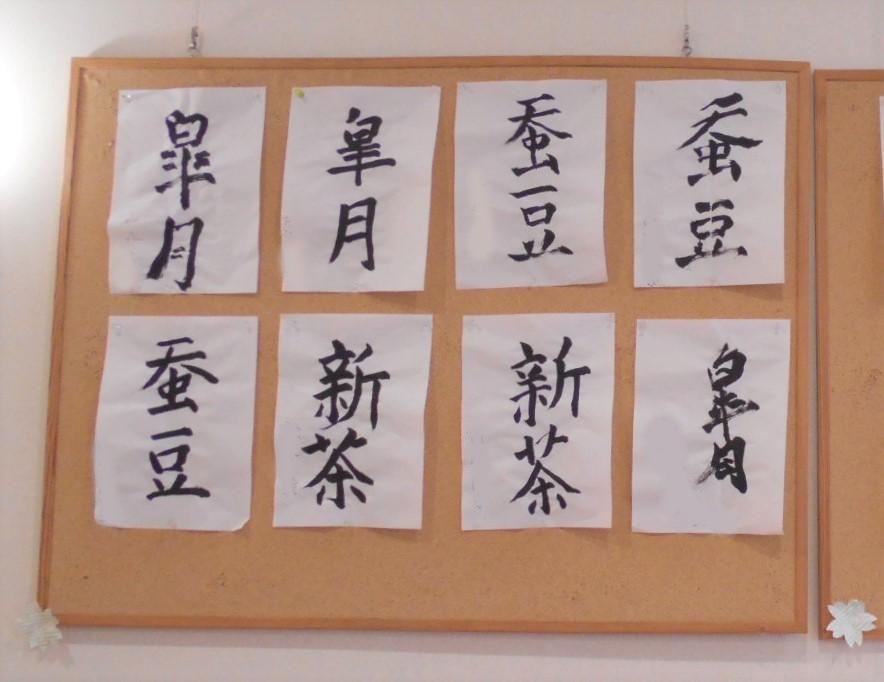 皐月
皐月
蚕豆
蚕豆
蚕豆
新茶
新茶
皐月